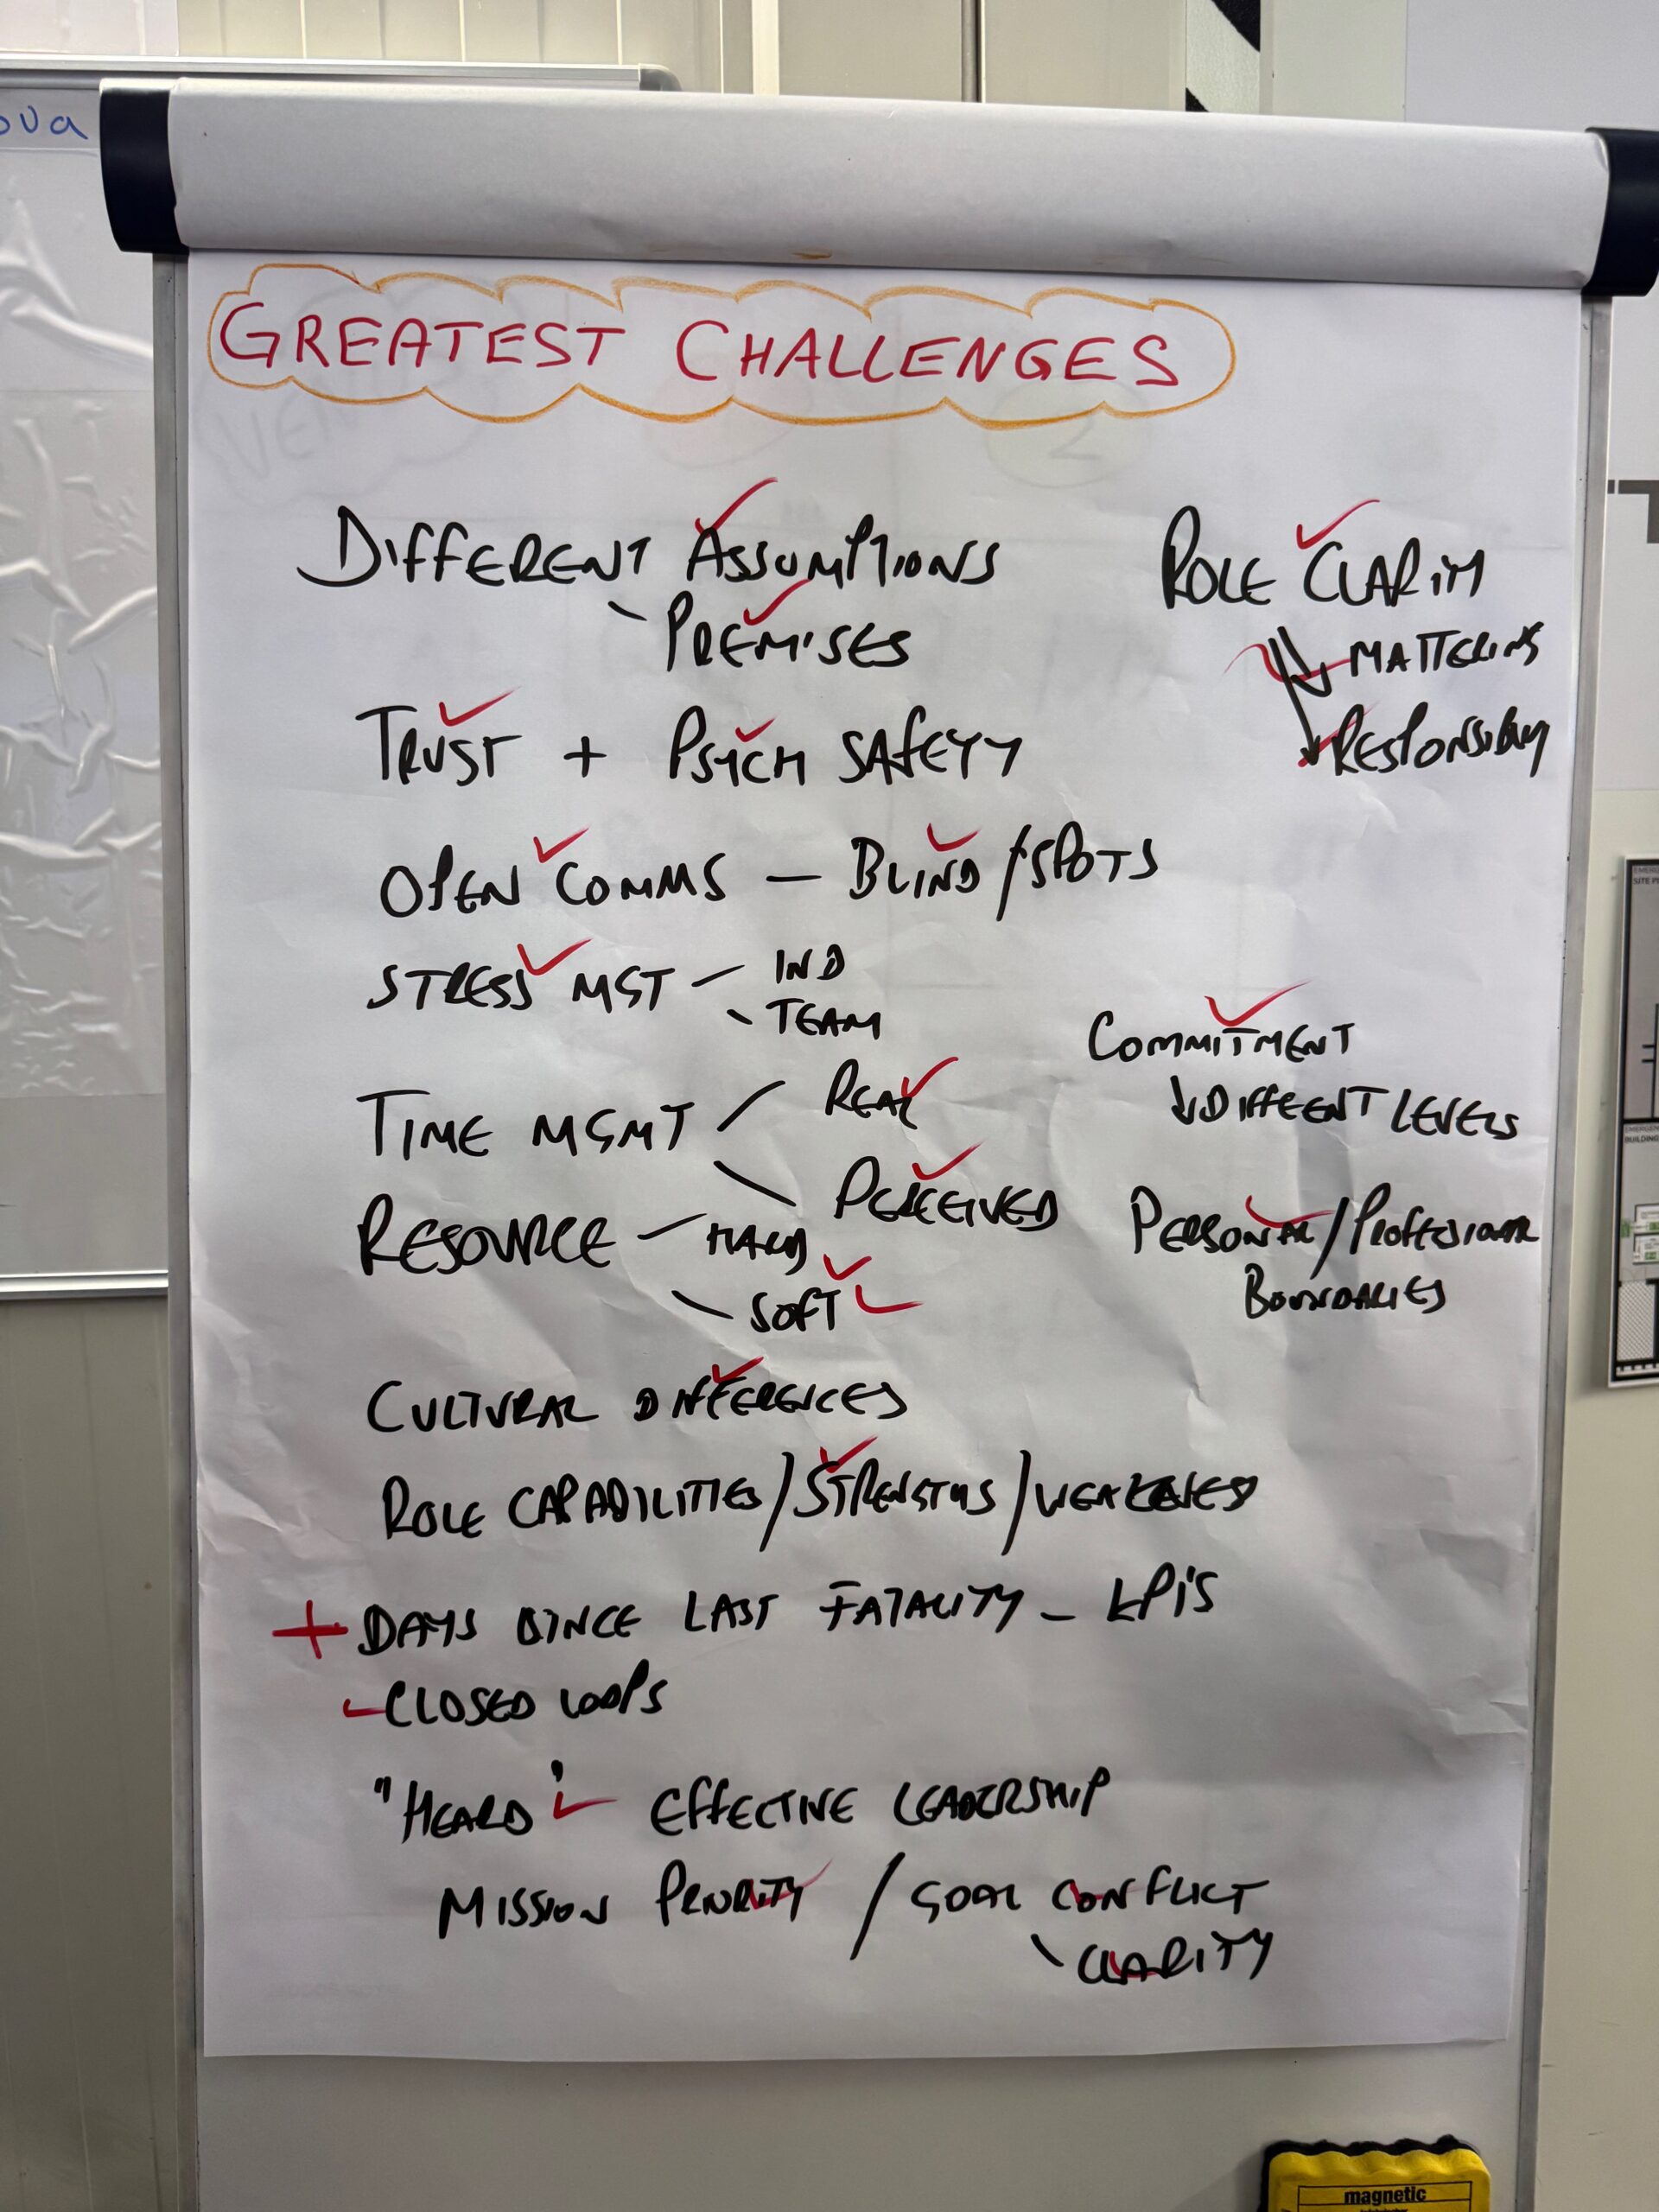 ova
GREATEST CHALLENGES
DIFFERENT ASSUMPTIONS
- PREMISES
TRUST + PSYCH SAFETY
OPEN COMMS — BLIND/SPOTS
STRESS MGT - IND
- TEAM
TIME MGMT - REAL
- PERCEIVED
RESOURCE - HARD
- SOFT
CULTURAL DIFFERENCES
ROLE CAPABILITIES/STRENGTHS/WEAKNESSES
+ DAYS SINCE LAST FATALITY - KPI'S
CLOSED LOOPS
"HEARD" EFFECTIVE LEADERSHIP
MISSION PRIORITY / GOAL CONFLICT
- CLARITY
ROLE CLARITY
MATTERING
RESPONSIBILITY
COMMITMENT
↓ DIFFEENT LEVELS
PERSONAL/PROFESSIONAL
BOUNDARIES
magnetic